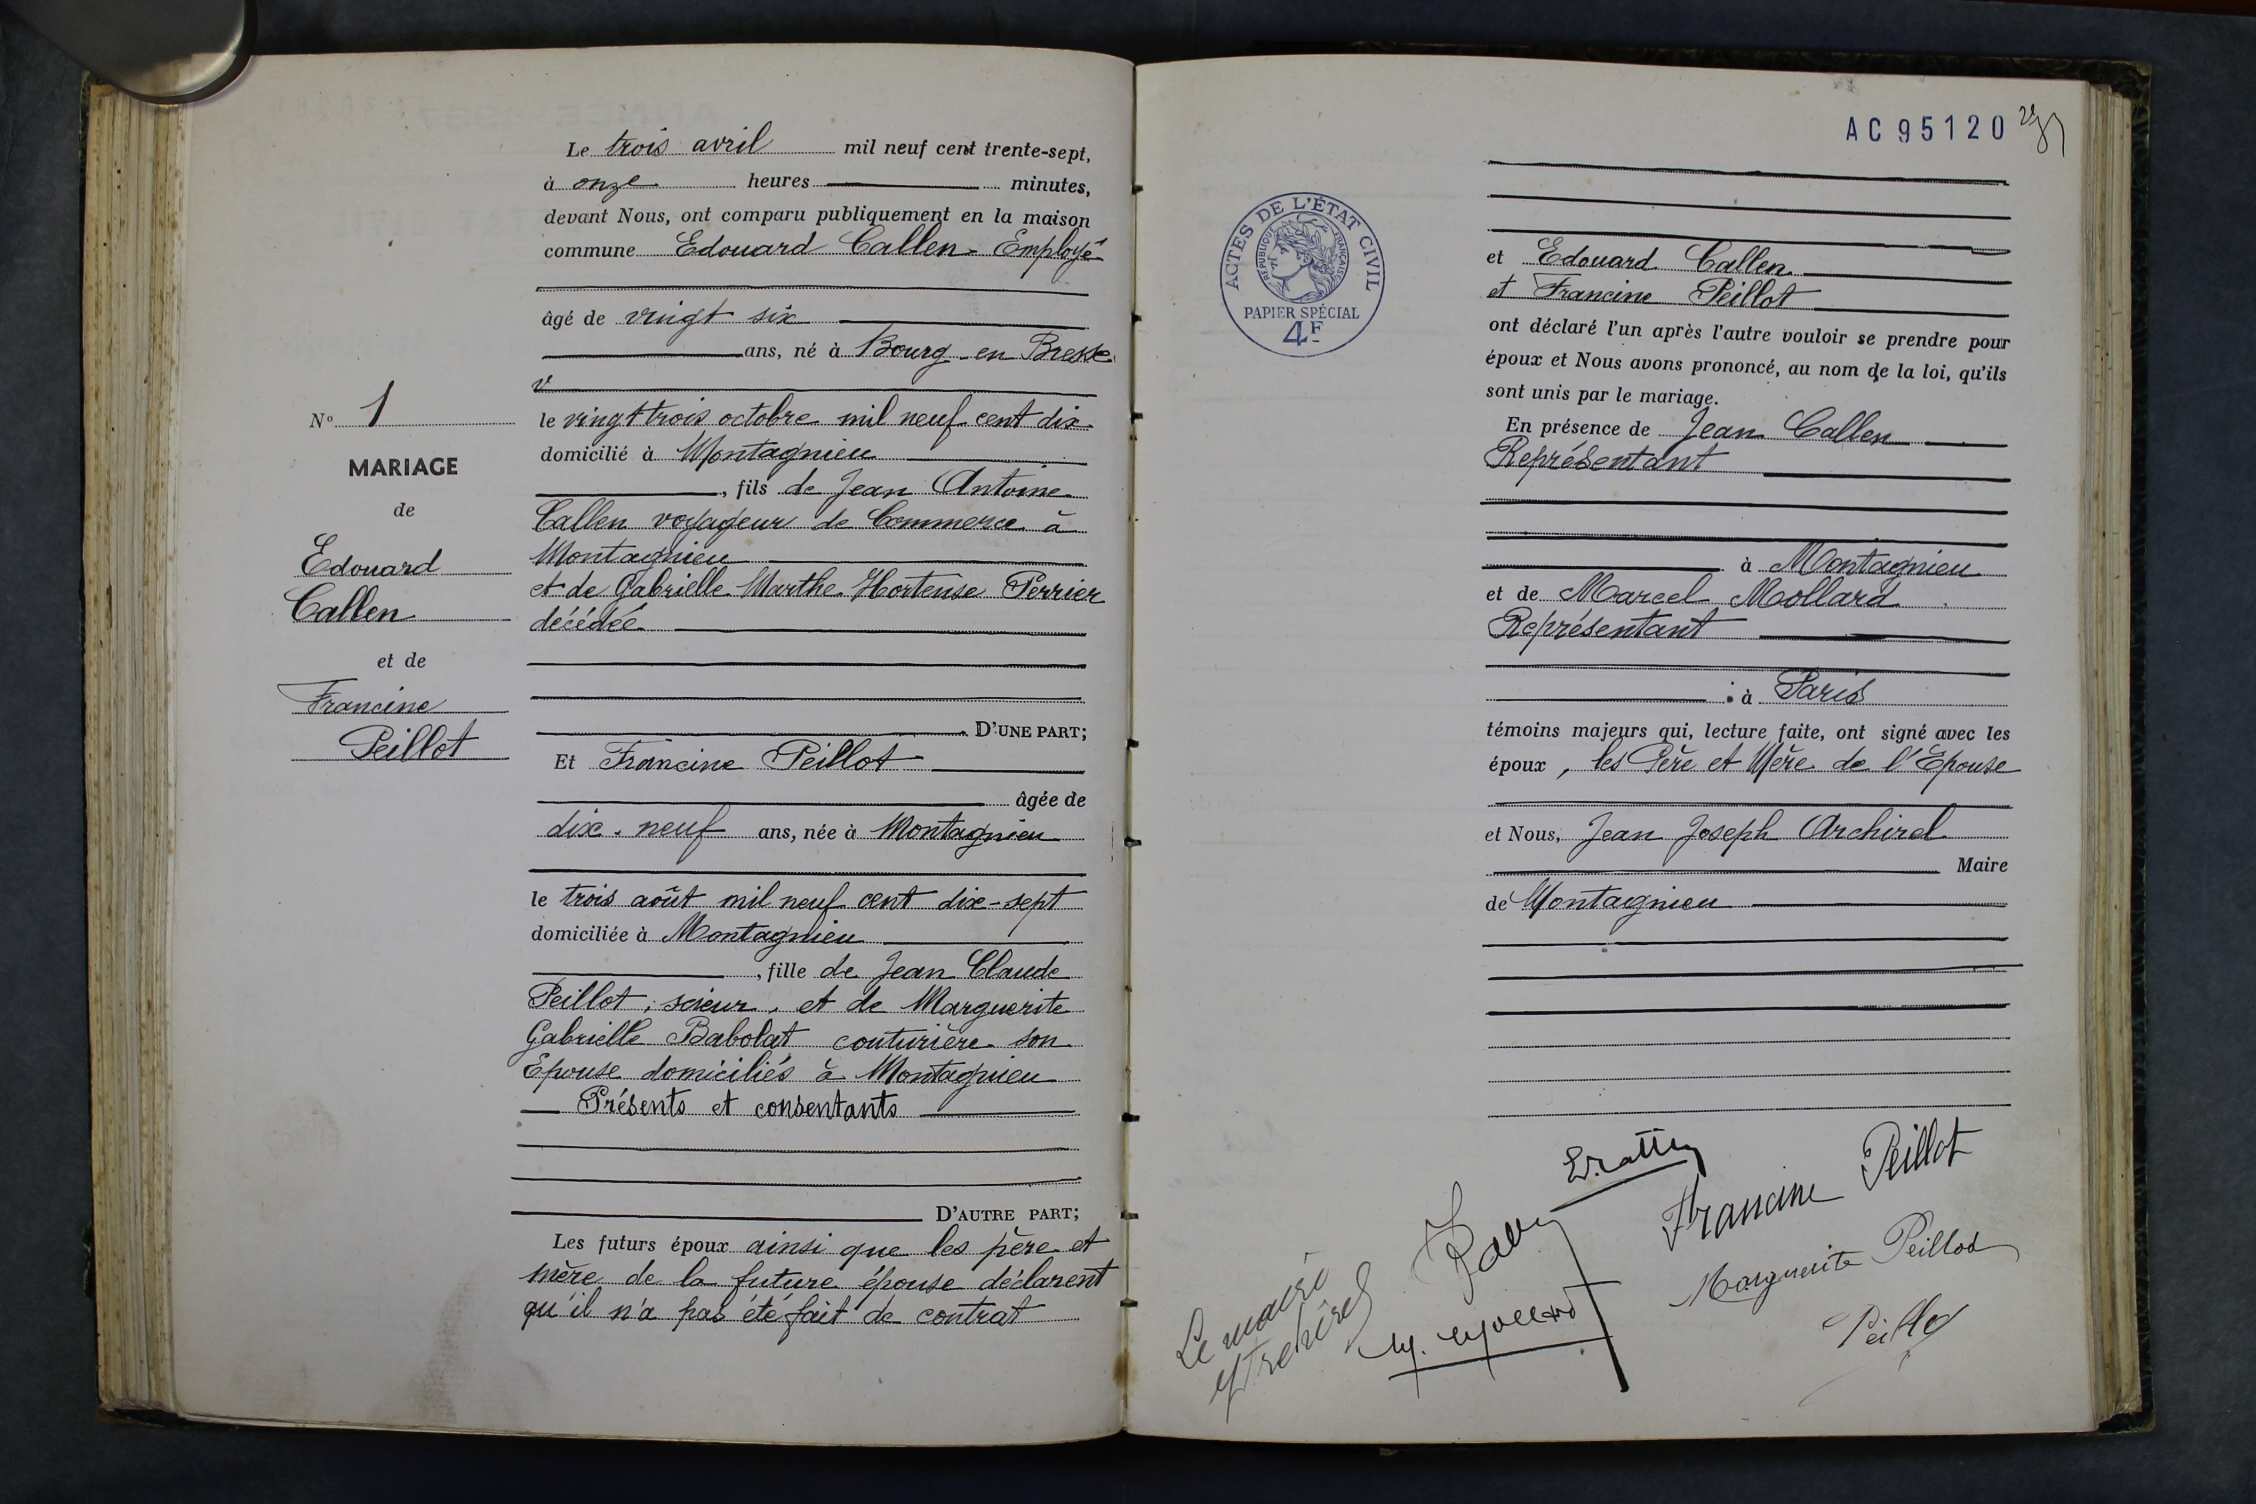 Le trois avril mil neuf cent trente-sept,
à onze heures minutes,
devant Nous, ont comparu publiquement en la maison
commune Edouard Callen - Employé
âgé de vingt six
ans, né à Bourg-en Bresse
le vingt trois octobre mil neuf cent dix
domicilié à Montagnieu
, fils de Jean Antoine
Callen voyageur de Commerce à
Montagnieu
et de Gabrielle Marthe Hortense Perrier
décédée
D'UNE PART;
Nº 1
MARIAGE
de
Edouard
Callen
et de
Francine
Peillot
Et Francine Peillot
âgée de
dix-neuf ans, née à Montagnieu
le trois août mil neuf cent dix-sept
domiciliée à Montagnieu
, fille de Jean Claude
Peillot, scieur, et de Marguerite
Gabrielle Babolat couturière son
Epouse domiciliés à Montagnieu
Présents et consentants
D'AUTRE PART;
Les futurs époux ainsi que les père et
mère de la future épouse déclarent
qu'il n'a pas été fait de contrat
AC 95120
ACTES DE L'ÉTAT CIVIL
RÉPUBLIQUE FRANÇAISE
PAPIER SPÉCIAL
4F
et Edouard Callen
et Francine Peillot
ont déclaré l'un après l'autre vouloir se prendre pour
époux et Nous avons prononcé, au nom de la loi, qu'ils
sont unis par le mariage.
En présence de Jean Callen
Représentant
à Montagnieu
et de Marcel Mollard
Représentant
à Paris
témoins majeurs qui, lecture faite, ont signé avec les
époux, les Père et Mère de l'Epouse
et Nous, Jean Joseph Archirel
Maire
de Montagnieu
Francine Peillot
Marguerite Peillot
Peillot
Le maire
Archirel
M. Mollard